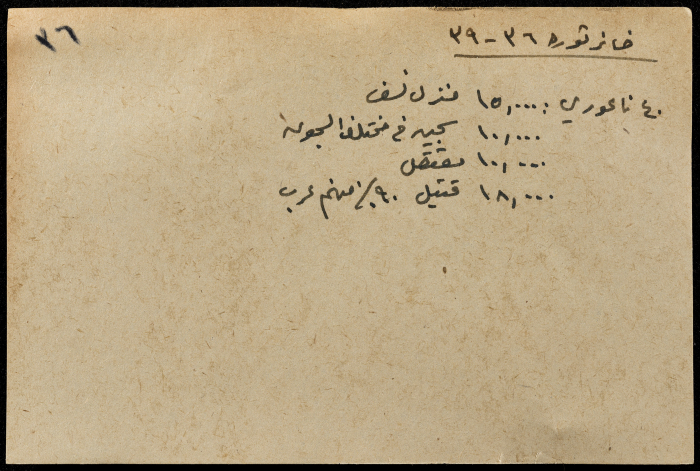 ٣٦
خسائر ثورة ٣٦ - ٣٩
ناعوري : ١٥,٠٠٠ منزل نسف
١٠,٠٠٠ سجين في مختلف السجون
١٠,٠٠٠ معتقل
١٨,٠٠٠ قتيل ٩٠٪ منهم عرب